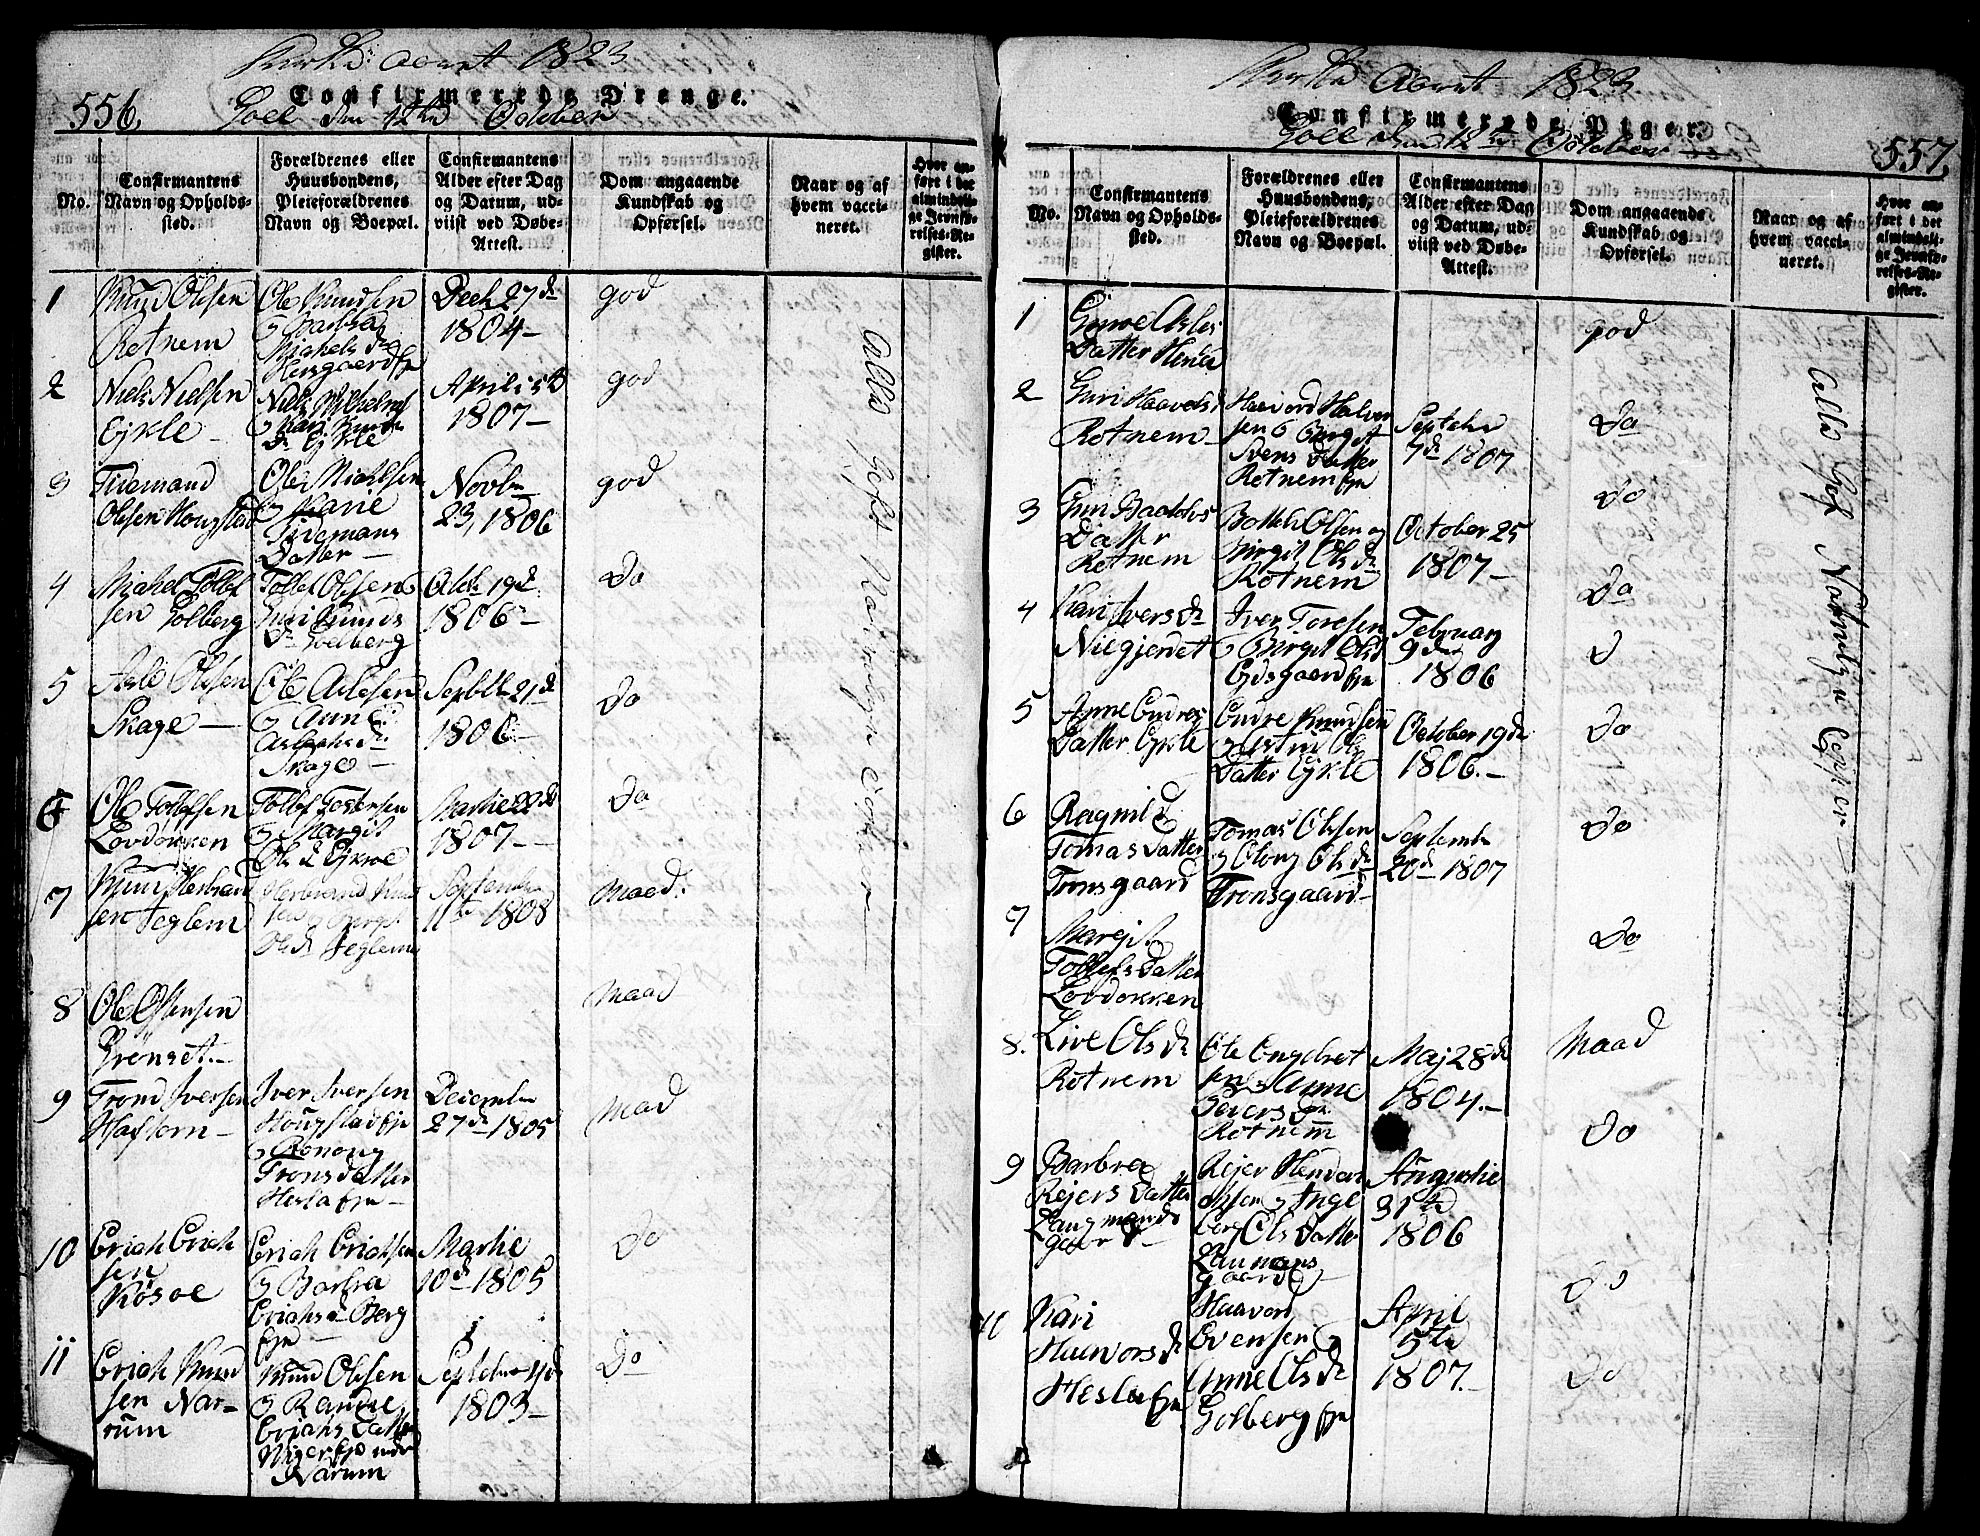 Kirke aaret 1823
Confirmerede Drenge.
556.
Goel den 12te October
No.
Confirmantens
Navn og Opholds-
sted.
Forældrenes eller
Huusbondens,
Pleieforældrenes
Navn og Boepæl.
Confirmantens
Alder efter Dag
og Datum, ud-
viist ved Døbe-
Attest.
Dom angaaende
Kundskab og
Opførsel.
Naar og af
hvem vacci-
neret.
Hvor an-
ført i det
almindeli-
ge Jevnfø-
relses-Re-
gister.
1
Knud Olsen
Rotnem
Ole Knudsen
og Barbra
Michels dr
Decb 27de
1804
god
2
Niels Nielsen
Eykle
Niels
dr Eykle
April 15de
1807
god
3
Tidemand
Olsen Hougstad
Ole Michelsen
og Karie
Tidemans
Datter
Novbr
23, 1806
god
4
Michel Tollef
sen Golberg
Tollef Olsen og
Guri Knuds
dr Golberg
Octb 19de
1806
Do
5
Asle Olsen
Skage
Ole Aslesen
og Anne
Aslaks dr
Skage
Septbr 21de
1806
Do
6
Ole Tollefsen
Lovdokken
Tollef Tostensen
og Margit
Ols d
Martie 22de
1807
Do
7
Knud Herbran
sen Teglem
Herbrand Knud
sen og Berge
Ols dr Teglem
September
11te 1808
Maad.
8
Ole Olsen
Grønset
Maad
9
Trond Iversen
Iver Iversen
Hougstad eje
og Ronoug
Tronsdatter
Hesla eje
December
27de 1805
Mad
10
Erich Erich
sen
Erich Erichsen
og Barbra
Erichsd Berg
eje
Martie
10de 1805
Do
11
Erich Knud
sen Nar-
rum
Knud Olsen
og Randie
Erichs Datter
Narum
1803
Do
Alle haft Naturlige Copper
Kirke Aaret 1823
Confirmerede Piger.
557.
Goel den 12te October
No.
Confirmantens
Navn og Opholds-
sted.
Forældrenes eller
Huusbondens,
Pleieforældrenes
Navn og Boepæl.
Confirmantens
Alder efter Dag
og Datum, ud-
viist ved Døbe-
Attest.
Dom angaaende
Kundskab og
Opførsel.
Naar og af
hvem vacci-
neret.
Hvor an-
ført i det
almindeli-
ge Jevnfø-
relses-Re-
gister.
1
Datter
god
2
Guri Haavords d
Rotnem
Haavord Halvor
sen og Birgit
Svens Datter
Rotnem eje
September
7de 1807
Do
3
Datter
Rotnem
Olsen og
Birgit Ols dr
Rotnem
October 25
1807
Do
4
Kari Ivers dr
Niegjerdet
Iver Toresen
og Birgit Olsd
Eidsgaard eje
Februarÿ
9de
1806
Do
D
5
Anne Endres
Datter Eykle
Endre Knudsen
og Astrid Ols
Datter Eykle
October 19de
1806
Do
6
Ragnild
Tomas Datter
Tronsgaard
Tomas Olsen
og Oloug Ols dr
Tronsgaard
September
20de 1807
Do
7
Margit
Tollefs Datter
Lovdokken
Do
8.
Live Ols dr
Rotnem
Ole Engebret
sen og Anne
Rejers dr
Rotnem
Maj 28de
1804
Maad
9
Barbra
Rejers Datter
Laugmands
gaar
Rejer
og Inge
borg Ols Datter
Laumans
gaard
Augustie
31te
1806
Do
10
Kari
Haavors dr
Hesla eje
Haavord
Evensen og
Anne Ols dr
Golberg eje
April
5te
1807
Do
Do
Alle haft Naturlige Copper